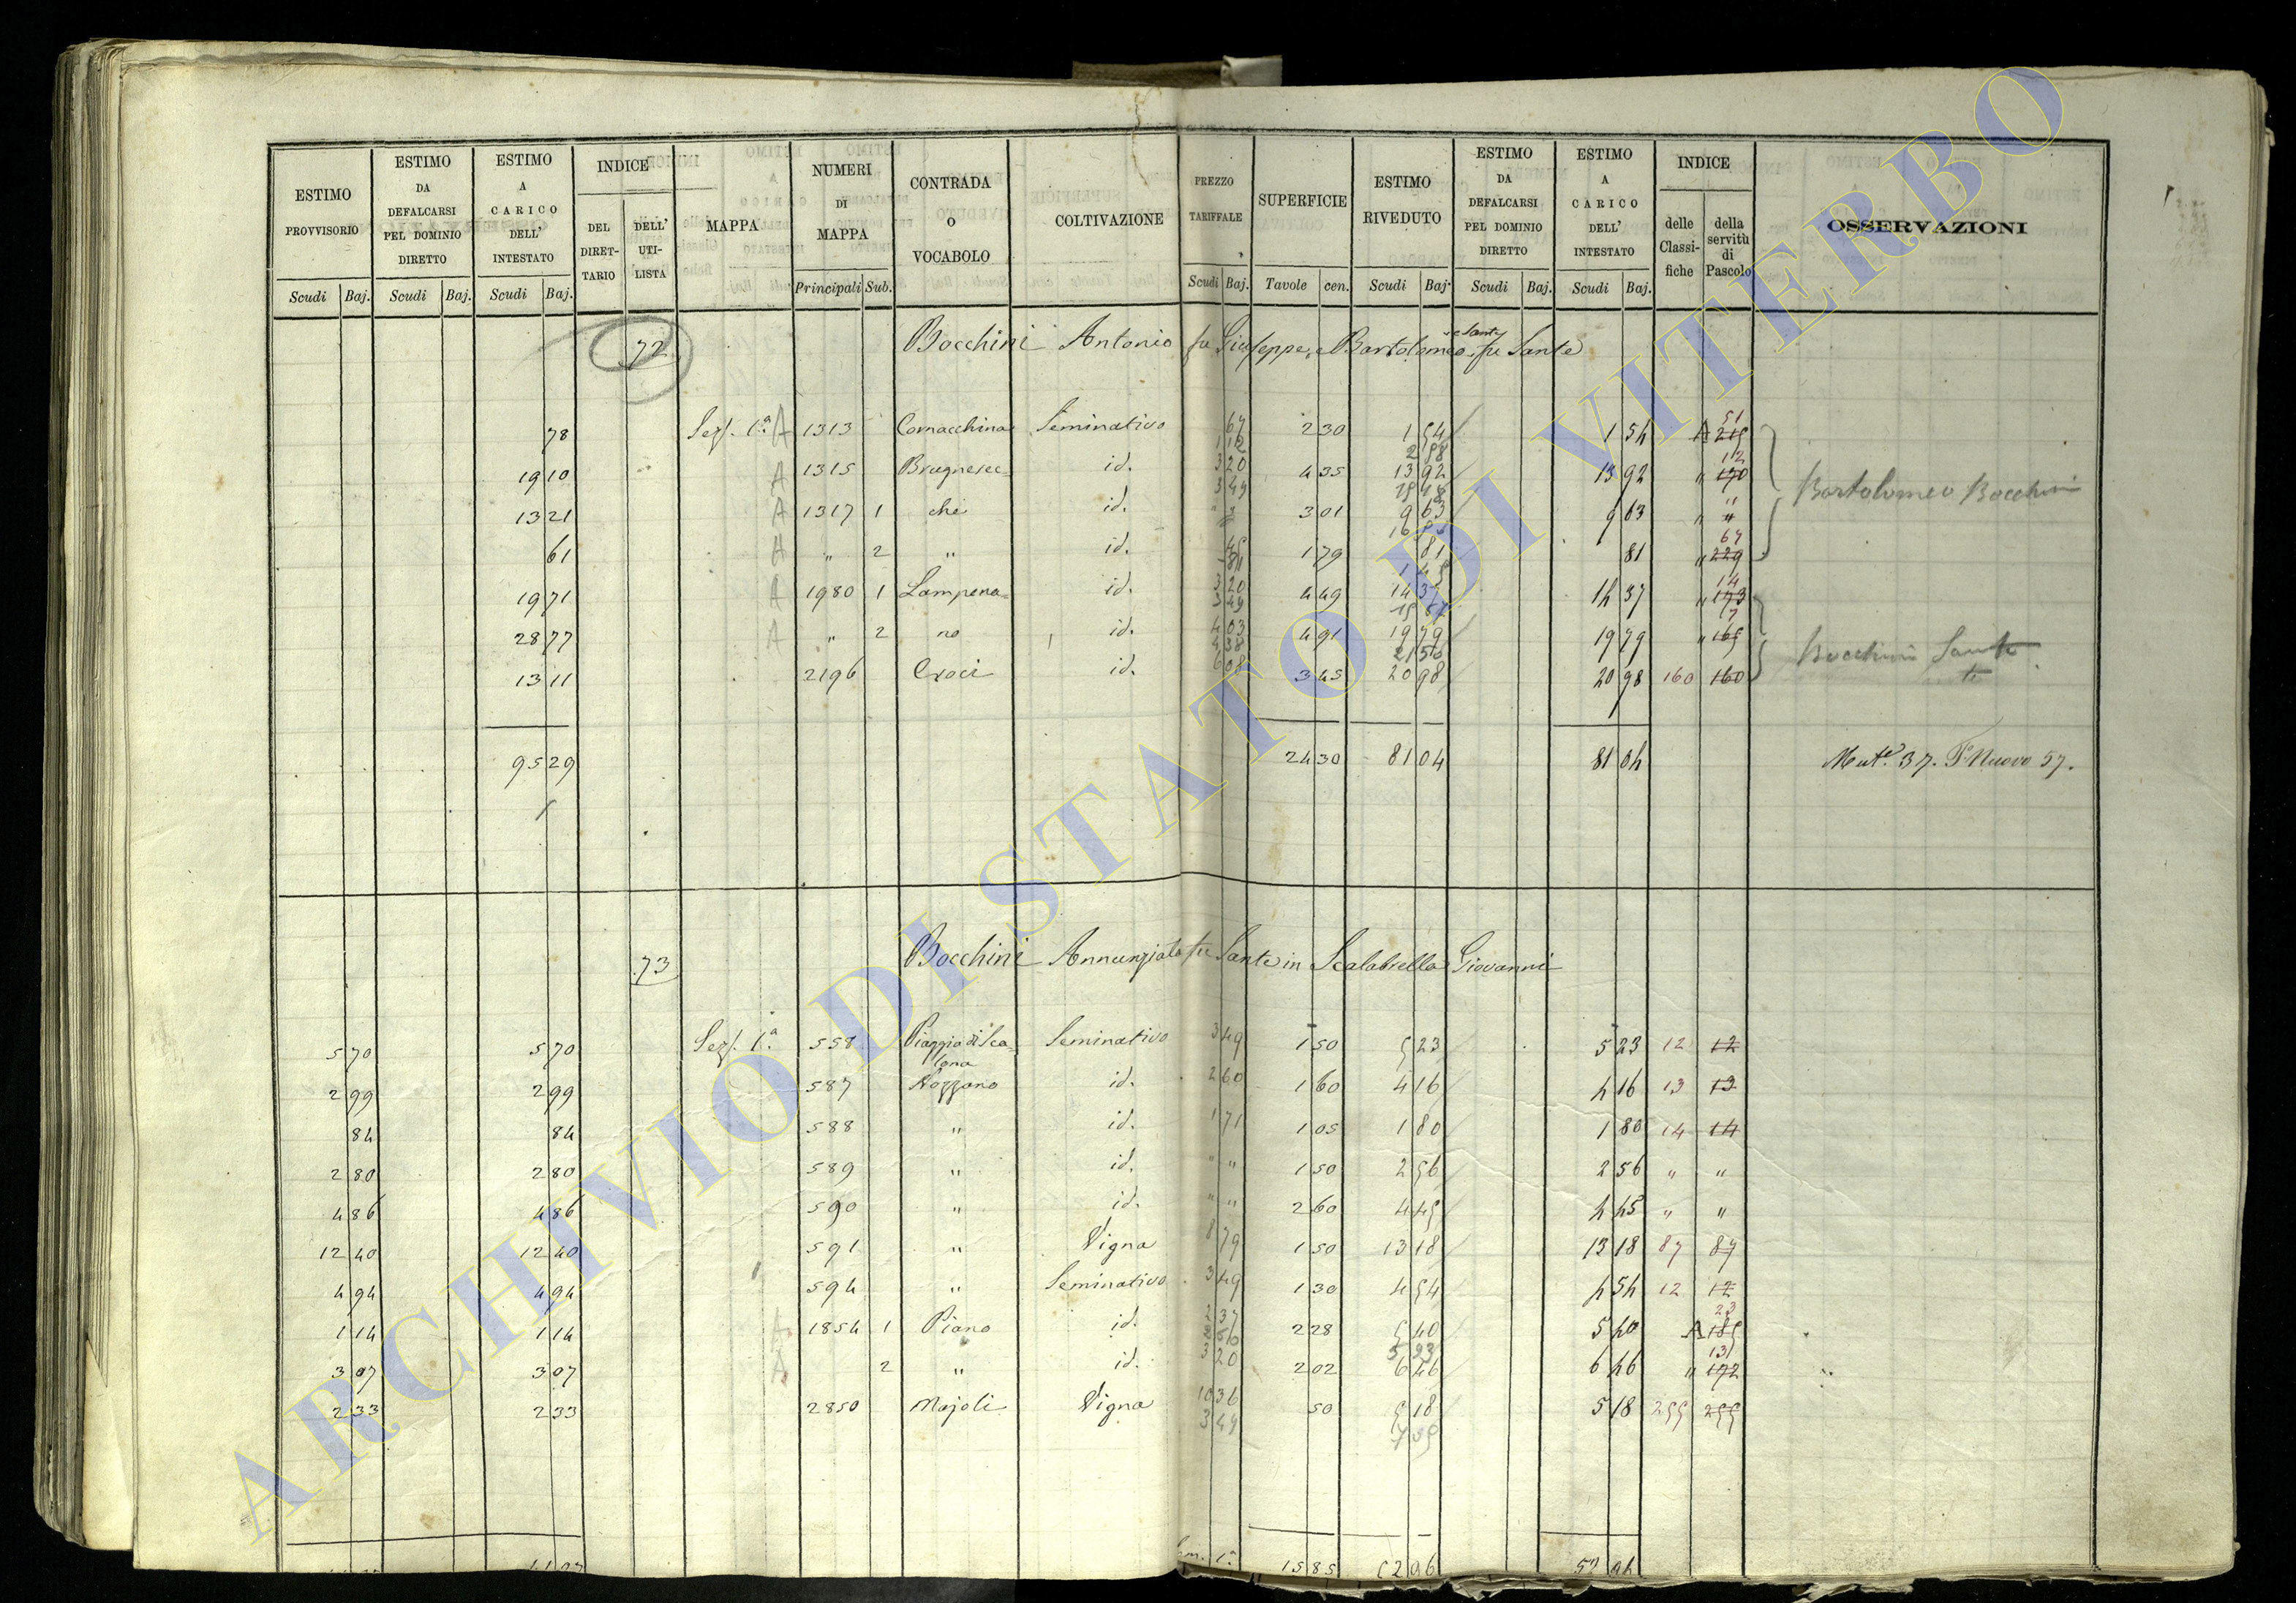 ESTIMO PROVVISORIO Scudi Baj.
ESTIMO DA DEFALCARSI PEL DOMINIO DIRETTO Scudi Baj.
ESTIMO A CARICO DELL' INTESTATO Scudi Baj.
INDICE DEL DIRET-TARIO DELL' UTI-LISTA
MAPPA
NUMERI DI MAPPA Principali Sub.
CONTRADA O VOCABOLO
COLTIVAZIONE
PREZZO TARIFFALE Scudi Baj.
SUPERFICIE Tavole cen.
ESTIMO RIVEDUTO Scudi Baj.
ESTIMO DA DEFALCARSI PEL DOMINIO DIRETTO Scudi Baj.
ESTIMO A CARICO DELL' INTESTATO Scudi Baj.
INDICE delle Classi-fiche della servitù di Pascolo
OSSERVAZIONI
72 Bocchini Antonio fu Giuseppe, e Bartolomeo e Sante fu Sante
78 Sez. 1ª A 1313 Cornacchina Seminativo 67 2 30 1 54 1 54 A 215 51
1 12 2 58
19 10 A 1315 Brugnesec= id. 3 20 4 35 13 92 13 92 " 170 12
3 49 15 18
13 21 A 1317 1 che id. 3 01 9 63 9 63 " "
61 A " 2 " id. 45 1 79 81 81 " 229 64
Bartolomeo Bocchini
19 71 A 1980 1 Lampena= id. 3 20 4 49 14 37 14 37 " 173 14
3 49
28 77 A " 2 no id. 4 03 4 91 19 79 19 79 " 165 7
4 38 21 56
13 11 2196 Croci id. 6 08 3 45 20 98 20 98 160 160
Bocchini Sante
95 29 24 30 81 04 81 04 Mutª. 37. Pº Nuovo 57.
73 Bocchini Annunziata fu Sante in Scalabrella Giovanni
5 70 5 70 Sez. 1ª 558 Piaggia di Sca=lona Seminativo 3 49 1 50 5 23 5 23 12 12
2 99 2 99 587 Nozzano id. 2 60 1 60 4 16 4 16 13 13
84 84 588 " id. 1 71 1 05 1 80 1 80 14 14
2 80 2 80 589 " id. " " 1 50 2 56 2 56 " "
4 86 4 86 590 " id. " " 2 60 4 45 4 45 " "
12 40 12 40 591 " Vigna 8 79 1 50 13 18 13 18 87 87
4 94 4 94 594 " Seminativo 3 49 1 30 4 54 4 54 12 12
1 14 1 14 1854 1 Piano id. 2 37 2 28 5 40 5 40 A 185 23
3 07 3 07 A 2 " id. 3 20 2 02 6 46 6 46 " 172 13
2 33 2 33 2850 Majoli Vigna 10 36 50 5 18 5 18 255 255
3 49
15 85 52 96 52 96
ARCHIVIO DI STATO DI VITERBO